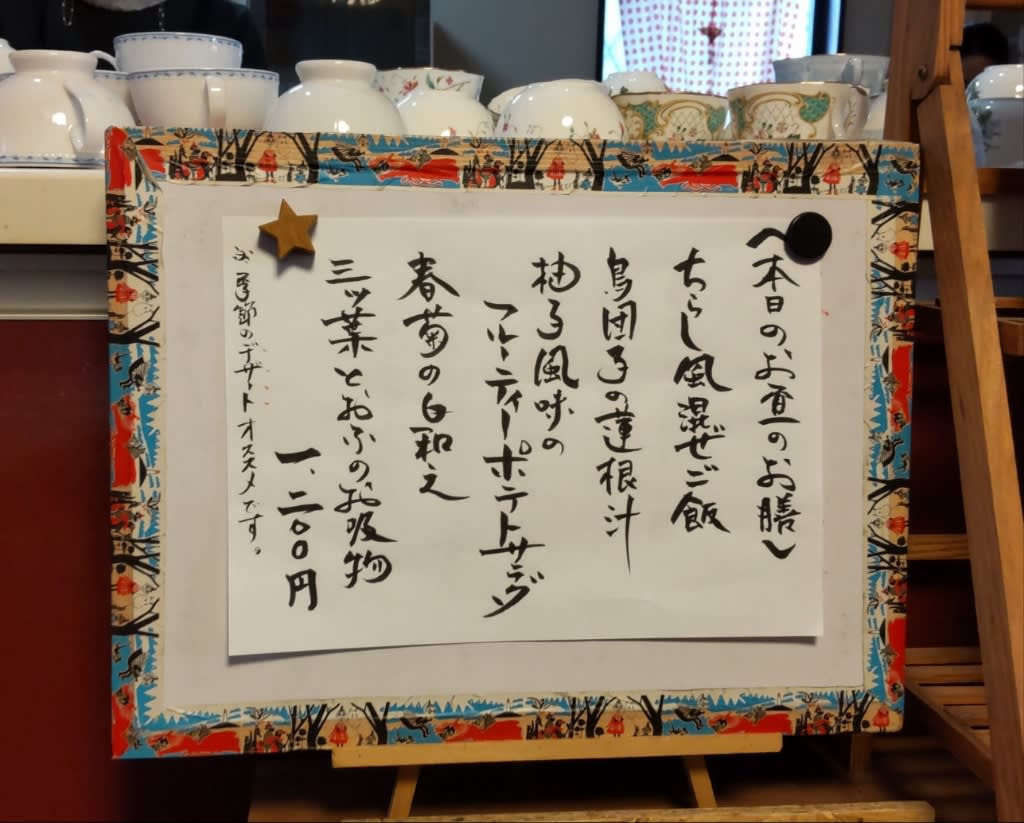 〈本日のお昼のお膳〉
ちらし風混ぜご飯
鳥団子の蓮根汁
柚子風味の
フルーティーポテトサラダ
春菊の白和え
三ッ葉とおふのお吸物
一、二〇〇円
季節のデザートオススメです。